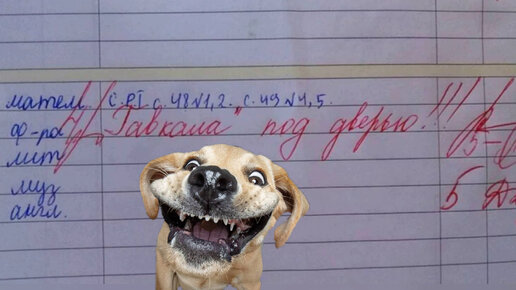 матем. С. РТ с. 48 №1, 2. с. 49 №4, 5.
„Гавкала" под дверью!!!
ф-ра
лит
муз
англ.
5